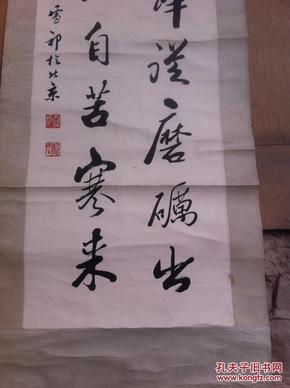 锋從磨礪出
自苦寒来
雪祁於北京
孔夫子旧书网
kongfz.com